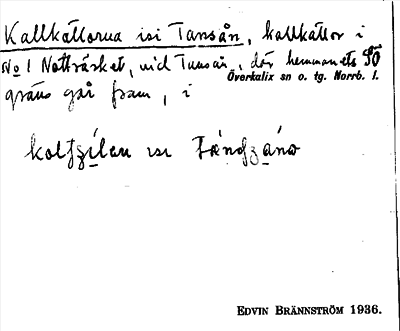 Kallkällorna isi Tansån, kallkällor i
No 1 Nattträsket, vid Tansån, där hemmanets SO
Överkalix sn o. tg. Norrb. l.
gräns går fram, i
isi
EDVIN BRÄNNSTRÖM 1936.